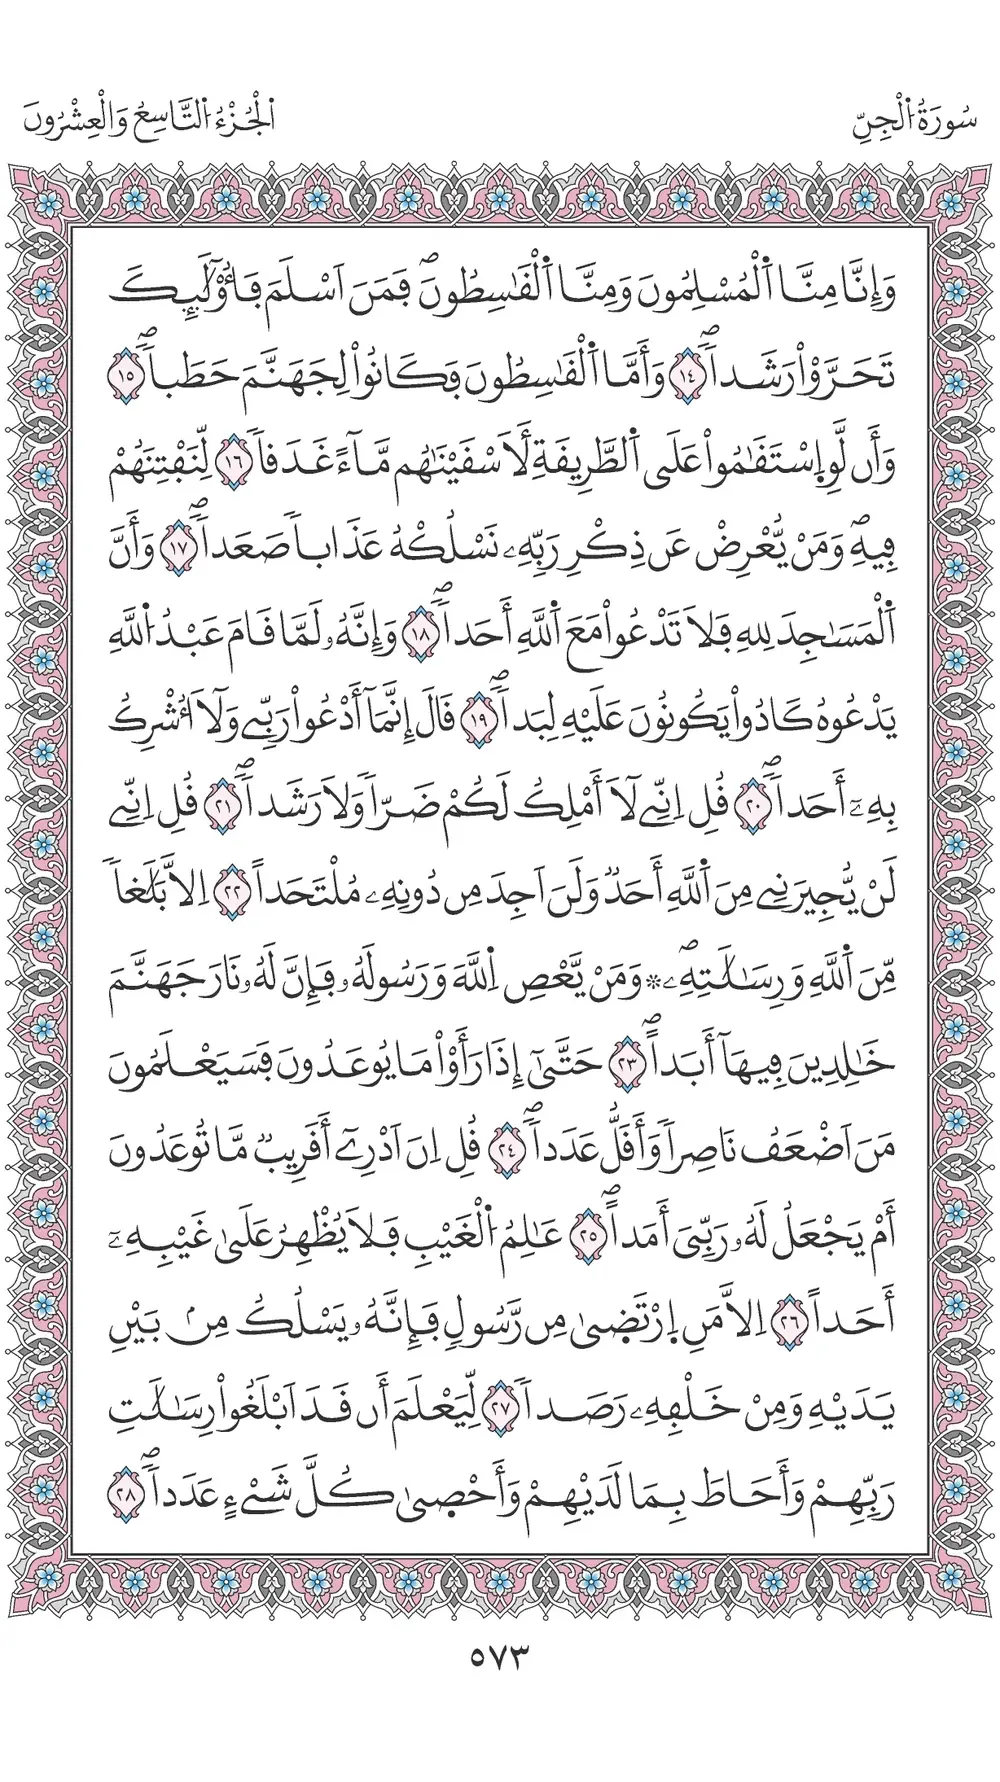 سُورَةُ اُ۬لْجِنِّ
اُ۬لْجُزْءُ اُ۬لتَّاسِعُ وَالْعِشْرُونَ
وَإِنَّا مِنَّا اَ۬لْمُسْلِمُونَ وَمِنَّا اَ۬لْقَٰسِطُونَۖ فَمَنَ اَسْلَمَ فَأُوْلَٰٓئِكَ
تَحَرَّوْاْ رَشَداٗۖ ١٤ وَأَمَّا اَ۬لْقَٰسِطُونَ فَكَانُواْ لِجَهَنَّمَ حَطَباٗۖ ١٥
وَأَن لَّوِ اِ۪سْتَقَٰمُواْ عَلَى اَ۬لطَّرِيقَةِ لَأَسْقَيْنَٰهُم مَّآءً غَدَقاٗ ١٦ لِّنَفْتِنَهُمْ
فِيهِۖ وَمَنْ يُّعْرِضْ عَن ذِكْرِ رَبِّهِۦ نَسْلُكْهُ عَذَاباٗ صَعَداٗۖ ١٧ وَأَنَّ
اَ۬لْمَسَٰجِدَ لِلهِ فَلَا تَدْعُواْ مَعَ اَ۬للَّهِ أَحَداٗۖ ١٨ وَإِنَّهُۥ لَمَّا قَامَ عَبْدُ اُ۬للَّهِ
يَدْعُوهُ كَادُواْ يَكُونُونَ عَلَيْهِ لِبَداٗۖ ١٩ قَالَ إِنَّمَآ أَدْعُواْ رَبِّے وَلَآ أُشْرِكُ
بِهِۦٓ أَحَداٗۖ ٢٠ قُلِ اِنِّے لَآ أَمْلِكُ لَكُمْ ضَرّاٗ وَلَا رَشَداٗۖ ٢١ قُلِ اِنِّے
لَنْ يُّجِيرَنِے مِنَ اَ۬للَّهِ أَحَدٞ وَلَنَ اَجِدَ مِن دُونِهِۦ مُلْتَحَداً ٢٢ اِلَّا بَلَٰغاٗ
مِّنَ اَ۬للَّهِ وَرِسَٰلَٰتِهِۦۖ ۞ وَمَنْ يَّعْصِ اِ۬للَّهَ وَرَسُولَهُۥ فَإِنَّ لَهُۥ نَارَ جَهَنَّمَ
خَٰلِدِينَ فِيهَآ أَبَداًۖ ٢٣ حَتَّىٰٓ إِذَا رَأَوْاْ مَا يُوعَدُونَ فَسَيَعْلَمُونَ
مَنَ اَضْعَفُ نَاصِراٗ وَأَقَلُّ عَدَداٗۖ ٢٤ قُلِ اِنَ اَدْرِےٓ أَقَرِيبٞ مَّا تُوعَدُونَ
أَمْ يَجْعَلُ لَهُۥ رَبِّيَ أَمَداًۖ ٢٥ عَٰلِمُ اُ۬لْغَيْبِ فَلَا يُظْهِرُ عَلَىٰ غَيْبِهِۦٓ
أَحَداً ٢٦ اِلَّا مَنِ اِ۪رْتَضىٰ مِن رَّسُولٖ فَإِنَّهُۥ يَسْلُكُ مِنۢ بَيْنِ
يَدَيْهِ وَمِنْ خَلْفِهِۦ رَصَداٗ ٢٧ لِّيَعْلَمَ أَن قَدَ اَبْلَغُواْ رِسَٰلَٰتِ
رَبِّهِمْ وَأَحَاطَ بِمَا لَدَيْهِمْ وَأَحْصىٰ كُلَّ شَےْءٍ عَدَداٗۖ ٢٨
٥٧٣